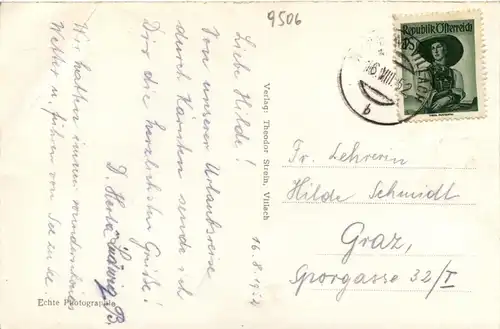 9506
Republik Österreich
VILLACH
Liebe Hilde!
Von unserer Urlaubsreise
durch Kärnten sende ich
Dir die herzlichsten Grüße!
D. Herta Ludwig
Wir hatten immer wunderschönes
Wetter u. fahren von See zu See
16.8.1952
Verlag: Theodor Strein, Villach
Fr. Lehrerin
Hilde Schmidt
Graz,
Sporgasse 32/I
Echte Photographie